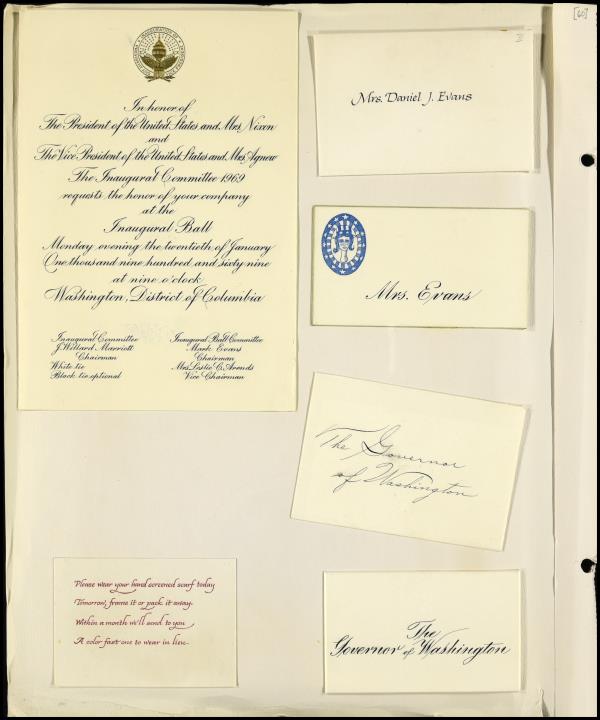 [60]
In honor of
The President of the United States and Mrs. Nixon
and
The Vice President of the United States and Mrs. Agnew
The Inaugural Committee 1969
requests the honor of your company
at the
Inaugural Ball
Monday evening the twentieth of January
One thousand and nine hundred and sixty nine
at nine o'clock
Washington, District of Columbia
Inaugural Committee
J. Willard Marriott
Chairman
White tie
Black tie optional
Inaugural Ball Committee
Mark Evans
Chairman
Mrs. Leslie C. Arends
Vice Chairman
Mrs. Daniel J. Evans
Mrs. Evans
The Governor
of Washington
Please wear your hand screened scarf today
Tomorrow, frame it or pack it away.
Within a month we'll send to you
A color fast one to wear in lieu.
The
Governor of Washington